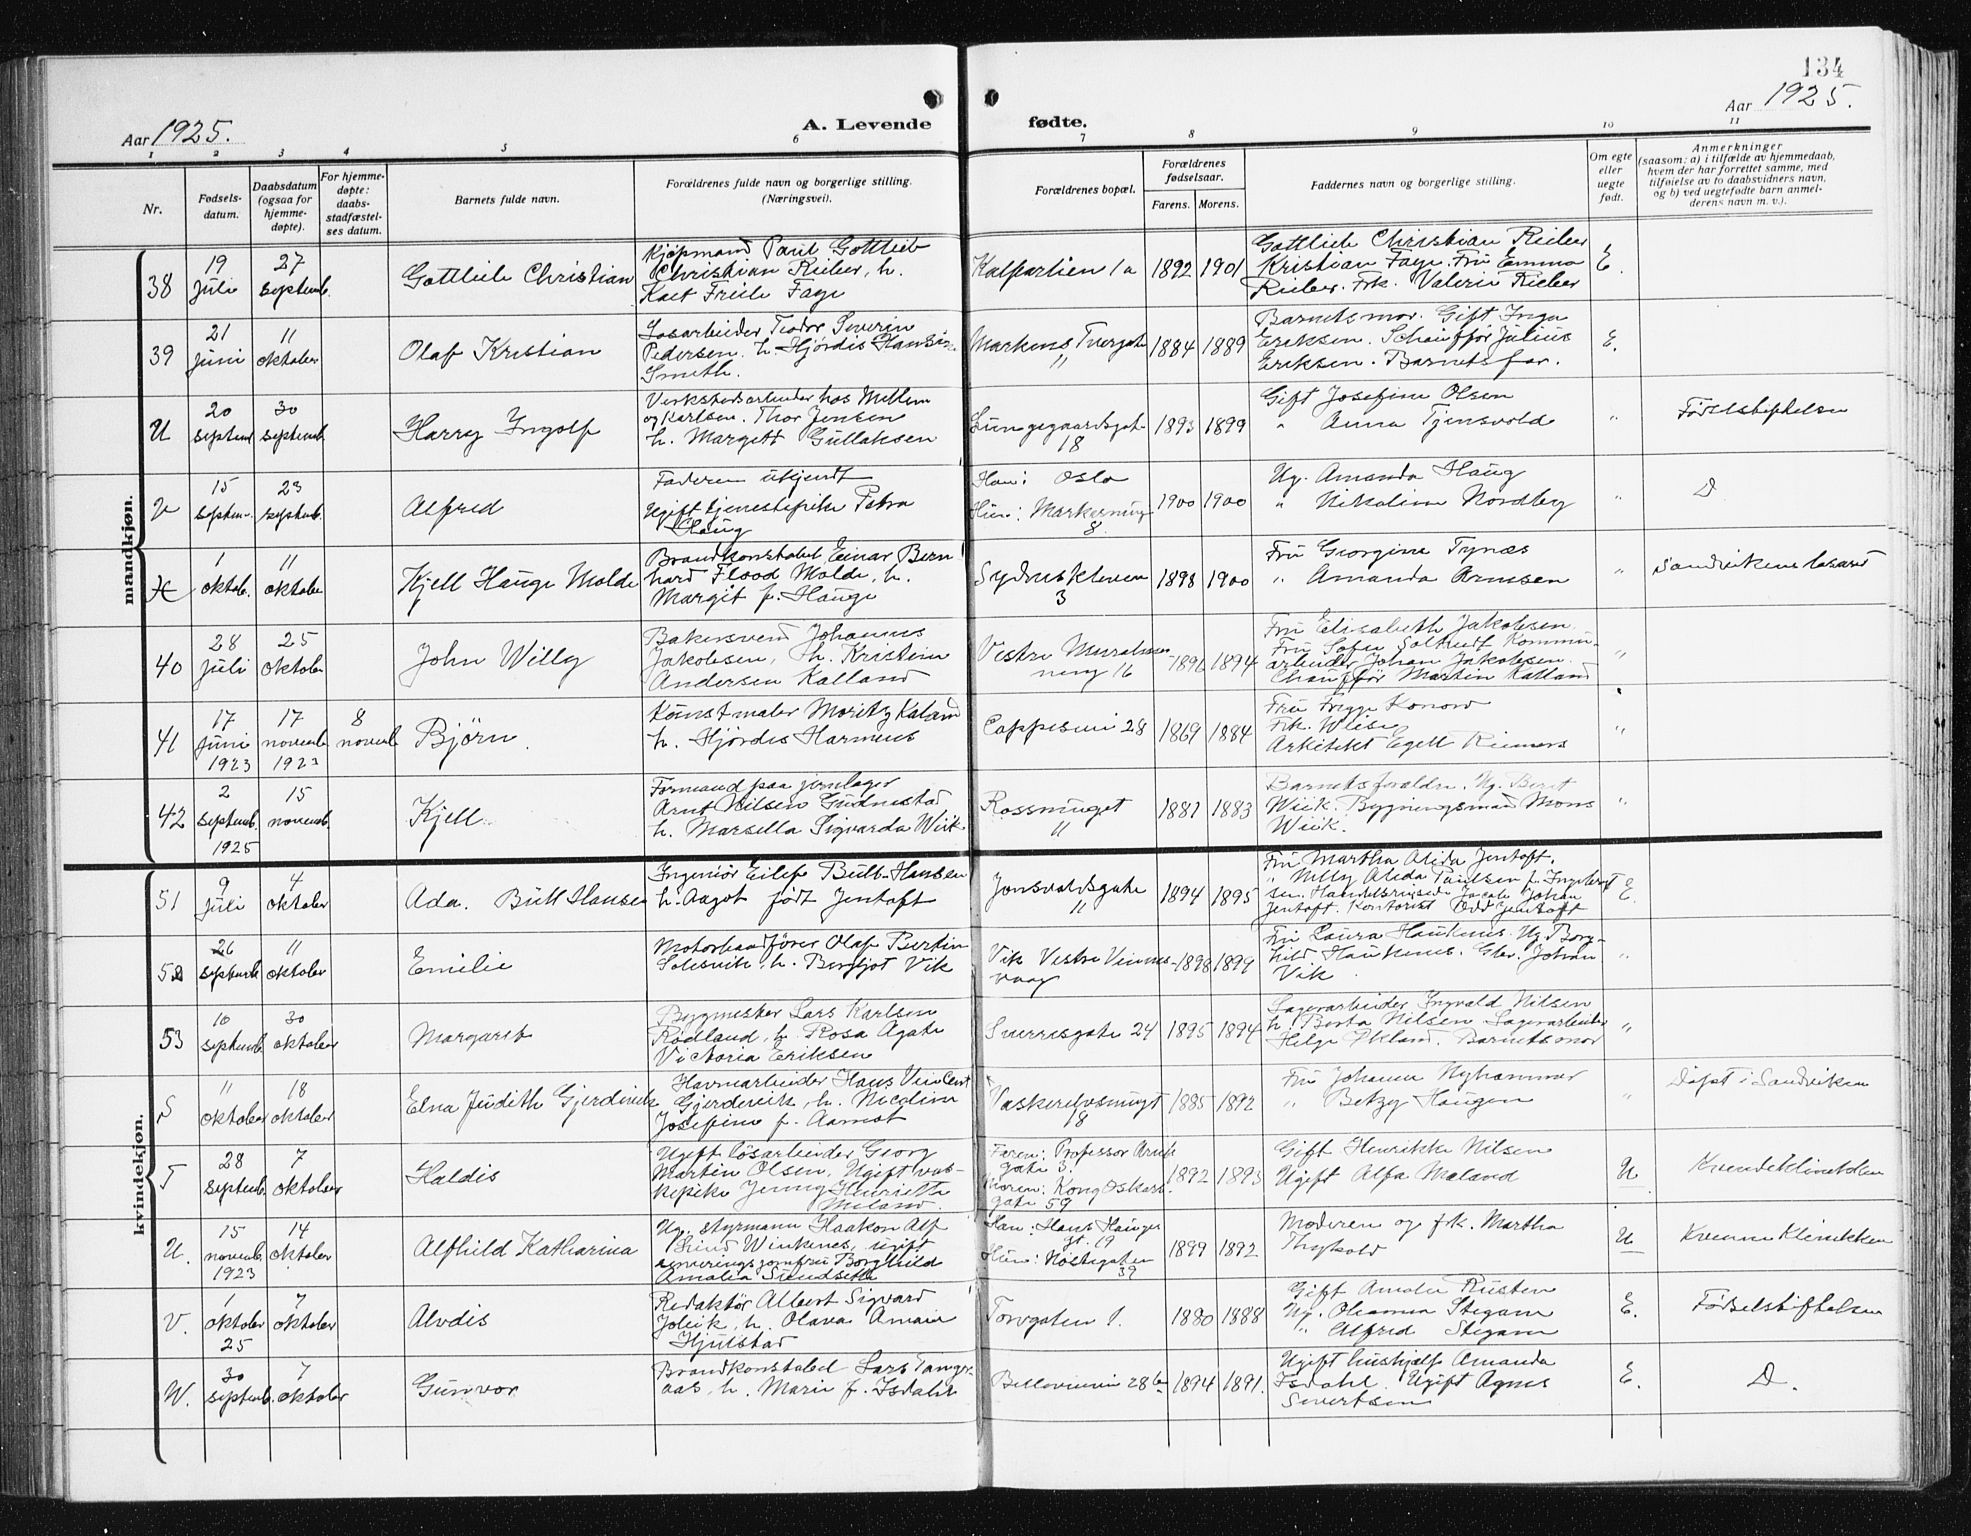 134
Aar 1925.
A. Levende fødte.
Aar 1925.
1 2 3 4 5 6 7 8 9 10 11
Nr.
Fødsels-
datum.
Daabsdatum
(ogsaa for
hjemme-
døpte).
For hjemme-
døpte:
daabs-
stadfæstel-
ses datum.
Barnets fulde navn.
Forældrenes fulde navn og borgerlige stilling.
(Næringsvei).
Forældrenes bopæl.
Forældrenes
fødselsaar.
Farens. Morens.
Faddernes navn og borgerlige stilling.
Om egte
eller
uegte
født.
Anmerkninger
(saasom: a) i tilfælde av hjemmedaab,
hvem der har forrettet samme, med
tilføielse av to daabsvidners navn,
og b) ved uegtefødte barn anmel-
derens navn m. v.).
mandkjøn.
38
19
Juli
27
septemb.
Gottlieb Christian
Kjøpmand Paul Gottlieb
Christian Rieber, h.
Kaet Friele Faye
Kalfarlien 1a
1892 1901
Gottlieb Christian Rieber
Kristian Faye. Fru Emma
Rieber. Frk. Valerie Rieber
E.
39
21
Juni
11
oktober
Olaf Kristian
Løsarbeider Teodor Severin
Pedersen. h. Hjørdis Hansine
Smith.
Markens Tvergate
11
1884 1889
Barnets mor. Gift Inga
Eriksen. Schauffør Julius
Eriksen. Barnets far.
E.
U
20
septemb
30
septemb
Harry Ingolf
Verkstedsarbeider hos Mellem
og Karlsen. Thor Jensen
h. Margett Gullaksen
Lungegaardsgate
18
1893 1899
Gift Josefine Olsen
" Anna Tjensvold
"
Fødselstiftelsen
V
15
septem.
23
septemb.
Alfred
Faderen ukjendt
Ugift tjenestepike Petra
Haug
Han: Oslo
Hun: Markensmug
8
1900 1900
Ug. Amanda Haug
" Nikoline Nordbøg
"
D
X
1
oktob.
11
oktober
Kjell Hauge Molde
Brandkonstabel Einar Bern
hard Flood Molde, h.
Margit f. Hauge
Sydneskleven
3
1898 1900
Fru Georgine Tynæs
" Amanda Arnesen
"
Sandvikens lasaret
40
28
Juli
25
oktober
John Willy
Bakersvend Johannes
Jakobsen, h. Kristine
Andersen Kalland
Vestre Muralmen
ning 16
1896 1894
Fru Elisabeth Jakobsen
Fru Sofie Soltvedt Kommu-
arbeider Johan Jakobsen.
Chauffør Martin Kalland
"
41
17
Juni
1923
17
novemb
1923
8
novemb
Bjørn
Kunstmaler Moritz Kaland
h. Hjørdis Harmens
Cappesvei 28
1869 1884
Fru Frigga Konow
Frk. Weise
Arkitekt Egill Reimers
"
42
2
septemb.
1925
15
novemb.
Kjell
Formand paa jernlager
Arnt Nilsen Gudmestad
h. Marsella Sigvarda Wiik
Rossmuget
11
1881 1883
Barnets foraldre. Ug. Berit
Wiik. Bygningsmand Mons
Wiik.
"
kvindekjøn.
51
9
Juli
4
oktober
Ada. Bull Hansen
Ingeniør Eilef Bull-Hansen
h. Aagot født Jentoft
Jonsvoldsgate
11
1894 1895
Fru Martha Alida Jentoft.
" Nelly Alida Paulsen f. Ingebrigt
sen. Handelsreisende Jacob Johan
Jentoft. Kontorist Odd Jentoft
E.
52
26
septemb
11
oktober
Emilie
Motorbaadfører Olaf Bertin
Solesvik, h. Bergljot Vik
Vik Vestre Vinnes-
vaag
1898 1899
Fru Laura Haukenes. Ug. Borg-
hild Haukenes. Gbr. Johan
Vik
"
53
10
septemb.
30
oktober
Margaret
Bygmester Lars Karlsen
Rødland, h. Rosa Agate
Victoria Eriksen
Sverresgate 24
1895 1894
Lagerarbeider Ingvald Nilsen
h. Berta Nilsen Lagerarbeider
Helge Økland. Barnets mor
"
S
11
oktober
18
oktober
Elna Judith Gjerdevik
Havnearbeider Hans Vincent
Gjerdevik, h. Nicoline
Josefine f. Aamot
Vaskerelvsmuget
18
1885 1892
Fru Johanne Nyhammer
" Betzy Haugen
"
Døpt i Sandviken
T
28
septemb.
7
oktober
Haldis
Ugift løsarbeider Georg
Martin Olsen, Ugift vas-
kepike Jenny Henriette
Meland.
Faren: Professor Arnet
gate 3.
Moren: Kong Oskars
gate 59
1892 1893
Gift Henrikke Nilsen
Ugift Alfa Maland
U
Kvindeklinikken
U.
15
novemb.
1923
14
oktober
Alfhild Katharina
Ug. styrmann Haakon Alf
Lind Winknes, ugift
serveringsjomfru Borghild
Amalia Sundsette
Han: Hans Hauges
gt. 19
Hun: Nøstegaten
39
1899 1892
Moderen og frk. Martha
Thykold
U
Kvinne Klinikken
V.
1
oktober
25
7
oktober
Alvdis
Redaktør Albert Sigvard
Jolvik, h. Olava Amalie
Hjulstad
Torvgaten 1.
1880 1888
Gift Amalie Rusten
Ug. Oleanna Stegane
" Alfred Stegane
E.
Fødselstiftelsen
W.
30
septemb.
7
oktober
Gunvor
Brandkonstabel Lars Tange-
aas, h. Marie f. Isdahl
Bellevueveien 28b
1894 1891.
Ugift hushjælp Amanda
Isdahl. Ugift Agnes
Sivertsen
E.
D.